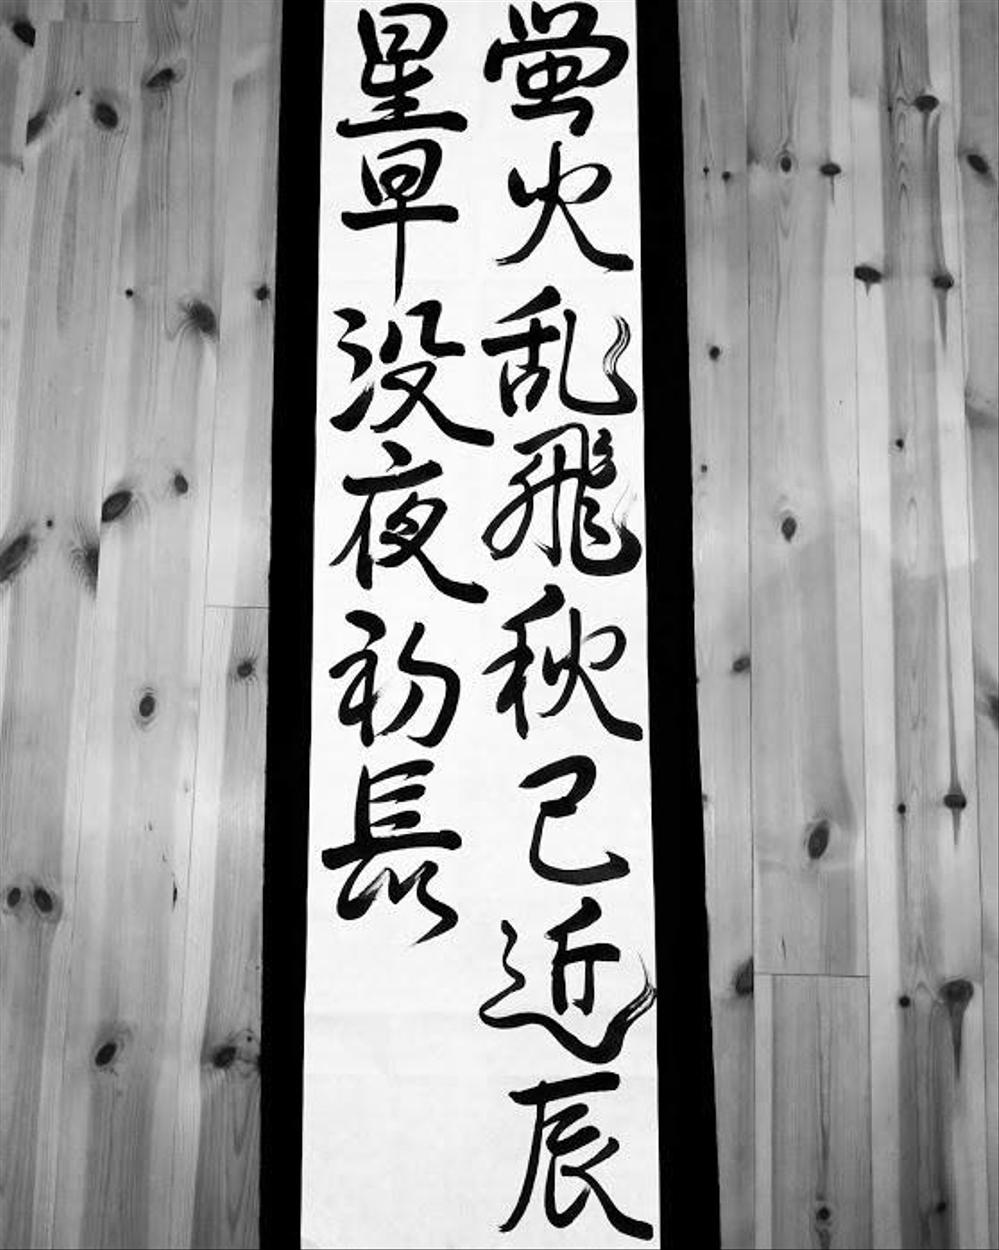 蛍火乱飛秋已近辰
星早没夜初長